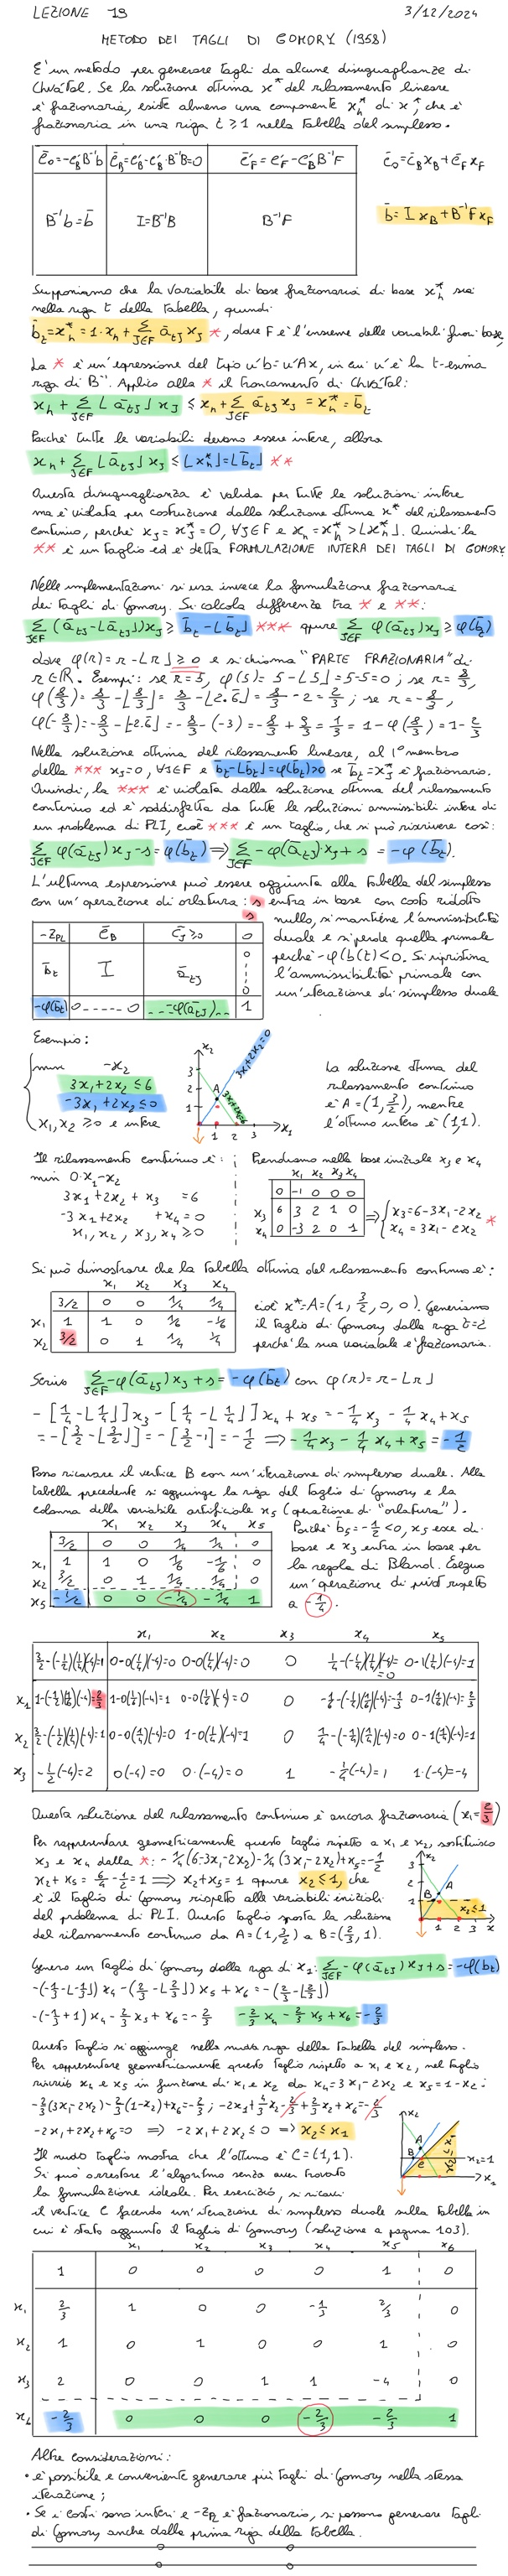 LEZIONE 19 3/12/2024
METODO DEI TAGLI DI GOMORY (1958)
E' un metodo per generare tagli da alcune disuguaglianze di
Chvátal. Se la soluzione ottima x* del rilassamento lineare
e' frazionaria, esiste almeno una componente x*h di x*, che e'
frazionaria in una riga t ≥ 1 nella tabella del simplesso.
c̄0=-c'B B⁻¹b | c̄'B=c'B-c'B·B⁻¹B=0 | c̄'F=c'F-c'B B⁻¹F c̄0=c̄B xB+c̄F xF
B⁻¹b=b̄ | I=B⁻¹B | B⁻¹F b̄=I xB+B⁻¹F xF
Supponiamo che la variabile di base frazionaria di base x*h sia
nella riga t della tabella, quindi
b̄t=x*h=1·xh+∑J∈F ātJ xJ *, dove F e' l'insieme delle variabili fuori base,
La * e' un'espressione del tipo u'b=u'Ax, in cui u' e' la t-esima
riga di B⁻¹. Applico alla * il troncamento di Chvátal:
xh+∑J∈F ⌊ātJ⌋xJ ≤ xh+∑J∈F ātJ xJ = x*h=b̄t
Poiche' tutte le variabili devono essere intere, allora
xh+∑J∈F ⌊ātJ⌋xJ ≤ ⌊x*h⌋=⌊b̄t⌋ **
Questa disuguaglianza e' valida per tutte le soluzioni intere
ma e' violata per costruzione dalla soluzione ottima x* del rilassamento
continuo, perche' xJ=x*J=0, ∀J∈F e xh=x*h>⌊x*h⌋. Quindi la
** e' un taglio ed e' detta FORMULAZIONE INTERA DEI TAGLI DI GOMORY
Nelle implementazioni si usa invece la formulazione frazionaria
dei tagli di Gomory. Si calcola differenza tra * e **:
∑J∈F (ātJ-⌊ātJ⌋)xJ ≥ b̄t-⌊b̄t⌋ *** oppure ∑J∈F φ(ātJ)xJ ≥ φ(b̄t)
dove φ(r)=r-⌊r⌋ ≥ 0 e si chiama "PARTE FRAZIONARIA" di
r∈ℝ. Esempi: se r=5, φ(5)=5-⌊5⌋=5-5=0; se r=8/3,
φ(8/3)=8/3-⌊8/3⌋=8/3-⌊2.6̄⌋=8/3-2=2/3; se r=-8/3,
φ(-8/3)=-8/3-⌊-2.6̄⌋=-8/3-(-3)=-8/3+9/3=1/3=1-φ(8/3)=1-2/3
Nella soluzione ottima del rilassamento lineare, al 1° membro
della *** xJ=0, ∀J∈F e b̄t-⌊b̄t⌋=φ(b̄t)>0 se b̄t=x*J e' frazionario.
Quindi, la *** e' violata dalla soluzione ottima del rilassamento
continuo ed e' soddisfatta da tutte le soluzioni ammissibili intere di
un problema di PLI, cioe' *** e' un taglio, che si puo' riscrivere cosi':
∑J∈F φ(ātJ)xJ-s=φ(b̄t) ⇒ ∑J∈F -φ(ātJ)·xJ+s = -φ(b̄t).
L'ultima espressione puo' essere aggiunta alla tabella del simplesso
con un'operazione di orlatura: s entra in base con costo ridotto
s nullo, si mantiene l'ammissibilita'
-zPL | c̄B | c̄J≥0 | 0 duale e si perde quella primale
b̄t | I | ātJ | 0 0 perche' -φ(b(t)<0. Si ripristina
l'ammissibilita' primale con
-φ(b̄t) | 0-----0 | ---φ(ātJ)-- | 1 un'iterazione di simplesso duale
Esempio:
min -x2
3x1+2x2≤6
-3x1+2x2≤0
x1,x2 ≥0 e intere
x2 3 2 1 A 1 2 3 x1 3x1+2x2=6 -3x1+2x2=0
La soluzione ottima del
rilassamento continuo
e' A=(1,3/2), mentre
l'ottimo intero e' (1,1).
Il rilassamento continuo e':
min 0·x1-x2
3x1+2x2+x3 =6
-3x1+2x2 +x4=0
x1,x2,x3,x4≥0
Prendiamo nella base iniziale x3 e x4
x1 x2 x3 x4
0 | 0 -1 0 0
x3 6 | 3 2 1 0
x4 0 | -3 2 0 1
⇒ {x3=6-3x1-2x2
x4=3x1-2x2 *
Si puo' dimostrare che la tabella ottima del rilassamento continuo e':
x1 x2 x3 x4
3/2 | 0 0 1/4 1/4
x1 1 | 1 0 1/6 -1/6
x2 3/2 | 0 1 1/4 1/4
cioe' x*=A=(1,3/2,0,0). Generiamo
il taglio di Gomory dalla riga t=2
perche' la sua variabile e' frazionaria.
Scrivo ∑J∈F -φ(ātJ)xJ+s=-φ(b̄t) con φ(r)=r-⌊r⌋
-[1/4-⌊1/4⌋]x3-[1/4-⌊1/4⌋]x4+x5=-1/4x3-1/4x4+x5
=-[3/2-⌊3/2⌋]=-[3/2-1]=-1/2 ⇒ -1/4x3-1/4x4+x5=-1/2
Posso ricavare il vertice B con un'iterazione di simplesso duale. Alla
tabella precedente si aggiunge la riga del taglio di Gomory e la
colonna della variabile artificiale x5 (operazione di "orlatura").
x1 x2 x3 x4 x5
3/2 | 0 0 1/4 1/4 0
x1 1 | 1 0 1/6 -1/6 0
x2 3/2 | 0 1 1/4 1/4 0
x5 -1/2 | 0 0 -1/4 -1/4 1
Poiche' b̄5=-1/2<0, x5 esce di
base e x3 entra in base per
la regola di Bland. Eseguo
un'operazione di pivot rispetto
a -1/4.
x1 x2 x3 x4 x5
3/2-(-1/2)(1/4)(-4)=1 | 0-0(1/4)(-4)=0 0-0(1/4)(-4)=0 0 1/4-(-1/4)(1/4)(-4)=0 0-1(1/4)(-4)=1
x1 1-(-1/2)(1/6)(-4)=2/3 | 1-0(1/6)(-4)=1 0-0(1/6)(-4)=0 0 -1/6-(-1/4)(1/6)(-4)=-1/3 0-1(1/6)(-4)=2/3
x2 3/2-(-1/2)(1/4)(-4)=1 | 0-0(1/4)(-4)=0 1-0(1/4)(-4)=1 0 1/4-(-1/4)(1/4)(-4)=0 0-1(1/4)(-4)=1
x3 -1/2(-4)=2 | 0(-4)=0 0·(-4)=0 1 -1/4(-4)=1 1·(-4)=-4
Questa soluzione del rilassamento continuo e' ancora frazionaria (x1=2/3)
Per rappresentare geometricamente questo taglio rispetto a x1 e x2, sostituisco
x3 e x4 dalla *: -1/4(6-3x1-2x2)-1/4(3x1-2x2)+x5=-1/2
x2+x5=6/4-1/2=1 ⇒ x2+x5=1 oppure x2≤1, che
e' il taglio di Gomory rispetto alle variabili iniziali
del problema di PLI. Questo taglio sposta la soluzione
del rilassamento continuo da A=(1,3/2) a B=(2/3,1).
x2 3 2 1 A B x2≤1 1 2 3 x
Genero un taglio di Gomory dalla riga di x1: ∑J∈F -φ(ātJ)xJ+s=-φ(b̄t)
-(-1/3-⌊-1/3⌋)x4-(2/3-⌊2/3⌋)x5+x6=-(2/3-⌊2/3⌋)
-(-1/3+1)x4-2/3x5+x6=-2/3 -2/3x4-2/3x5+x6=-2/3
Questo taglio si aggiunge nella nuova riga della tabella del simplesso.
Per rappresentare geometricamente questo taglio rispetto a x1 e x2, nel taglio
riscrivo x4 e x5 in funzione di x1 e x2 da x4=3x1-2x2 e x5=1-x2:
-2/3(3x1-2x2)-2/3(1-x2)+x6=-2/3; -2x1+4/3x2-2/3+2/3x2+x6=-2/3
-2x1+2x2+x6=0 ⇒ -2x1+2x2≤0 ⇒ x2≤x1
Il nuovo taglio mostra che l'ottimo e' C=(1,1).
Si puo' arrestare l'algoritmo senza aver trovato
la formulazione ideale. Per esercizio, si ricavi
il vertice C facendo un'iterazione di simplesso duale sulla tabella in
cui e' stato aggiunto il taglio di Gomory (soluzione a pagina 103).
x2 A B C x2≤x1 x2=1 x1
x1 x2 x3 x4 x5 x6
1 | 0 0 0 0 1 0
x1 2/3 | 1 0 0 -1/3 2/3 0
x2 1 | 0 1 0 0 1 0
x3 2 | 0 0 1 1 -4 0
x6 -2/3 | 0 0 0 -2/3 -2/3 1
Altre considerazioni:
• e' possibile e conveniente generare piu' tagli di Gomory nella stessa
iterazione;
• Se i costi sono interi e -zPL e' frazionario, si possono generare tagli
di Gomory anche dalla prima riga della tabella.